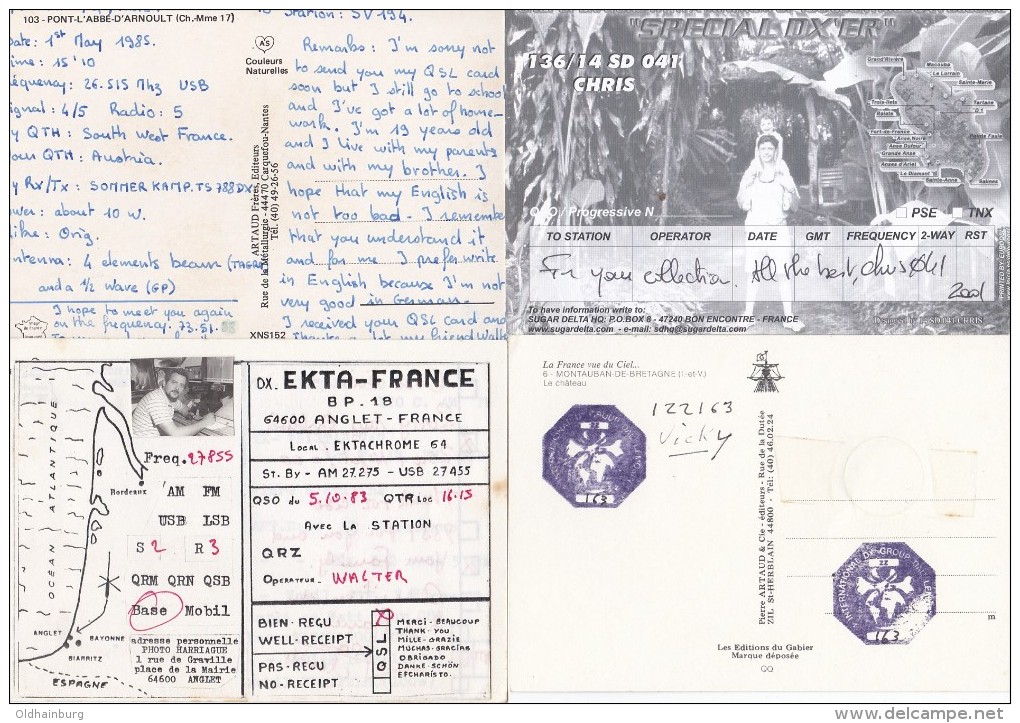 103 - PONT-L'ABBÉ-D'ARNOULT (Ch.-Mme 17)
ate: 1st May 1985.
ime: 15'10
équency: 26.515 Mhz USB
ignal: 4/5 Radio: 5
y QTH: South West France.
our QTH: Austria.
y Rx/Tx: SOMMERKAMP.TS 788DX
wer: about 10 w.
ike: Orig.
ntenna: 4 elements beam (TAGRA)
and a 1/2 Wave (GP)
I hope to meet you again
on the frequency. 73.51. 88
A'S
Couleurs
Naturelles
ARTAUD Frères, Editeurs
Rue de la Métallurgie - 44470 Carquefou-Nantes
Tél. (40) 49-26-56
XNS152
Station: SV 194.
Remarks: I'm sorry not
to send you my QSL card
soon but I still go to school
and I've got a lot of home-
work. I'm 19 years old
and I live with my parents
and with my brother. I
hope that my English is
not too bad - I remember
that you understand it
and for me I prefer write
in English because I'm not
very good in German.
I received your QSL card and
Thanks a lot my friend Walter
"SPECIAL DX'ER"
136/14 SD 041
CHRIS
Grand'Rivière
Macouba
Le Lorrain
Sainte-Marie
Trois-Ilets
Tartane
Fort-de-France
Anse Noire
Anse Dufour
Grande Anse
Anses d'Arlet
Le Diamant
Sainte-Anne
Salines
QSO / Progressive N
PSE TNX
TO STATION OPERATOR DATE GMT FREQUENCY 2-WAY RST
For your collection. All the best, chris 041
2001
To have information write to:
SUGAR DELTA HQ: P.O.BOX 6 - 47240 BON ENCONTRE - FRANCE
www.sugardelta.com - e-mail: sdhq@sugardelta.com
Designed by 14SD041 CHRIS
OCEAN ATLANTIQUE
Bordeaux
ANGLET
BAYONNE
BIARRITZ
ESPAGNE
Freq. 27855
AM FM
USB LSB
S 2 R 3
QRM QRN QSB
Base Mobil
adresse personnelle
PHOTO HARRIAGUE
1 rue de Graville
place de la Mairie
64600 ANGLET
DX. EKTA-FRANCE
BP. 18
64600 ANGLET - FRANCE
Local. EKTACHROME 64
St. By - AM 27.275 - USB 27455
QSO du 5.10.83 QTR Loc 16.15
Avec La STATION
QRZ
Operateur. WALTER
BIEN - REÇU
WELL - RECEIPT
PAS - RECU
NO - RECEIPT
QSL
X
MERCI - BEAUCOUP
THANK - YOU
MILLE - GRAZIE
MUCHAS - GRACIAS
OBRIGADO
DANKE - SCHÖN
EFCHARISTO.
La France vue du Ciel...
6 - MONTAUBAN-DE-BRETAGNE (I.-et-V.)
Le château
122163
Vicky
163
Pierre ARTAUD & Cie - éditeurs - Rue de la Dutée
ZIL St-HERBLAIN 44800 - Tél: (40) 46.02.24
INTERNATIONAL DX-GROUP
22
163
m
Les Editions du Gabier
Marque déposée
GQ
Oldhainburg